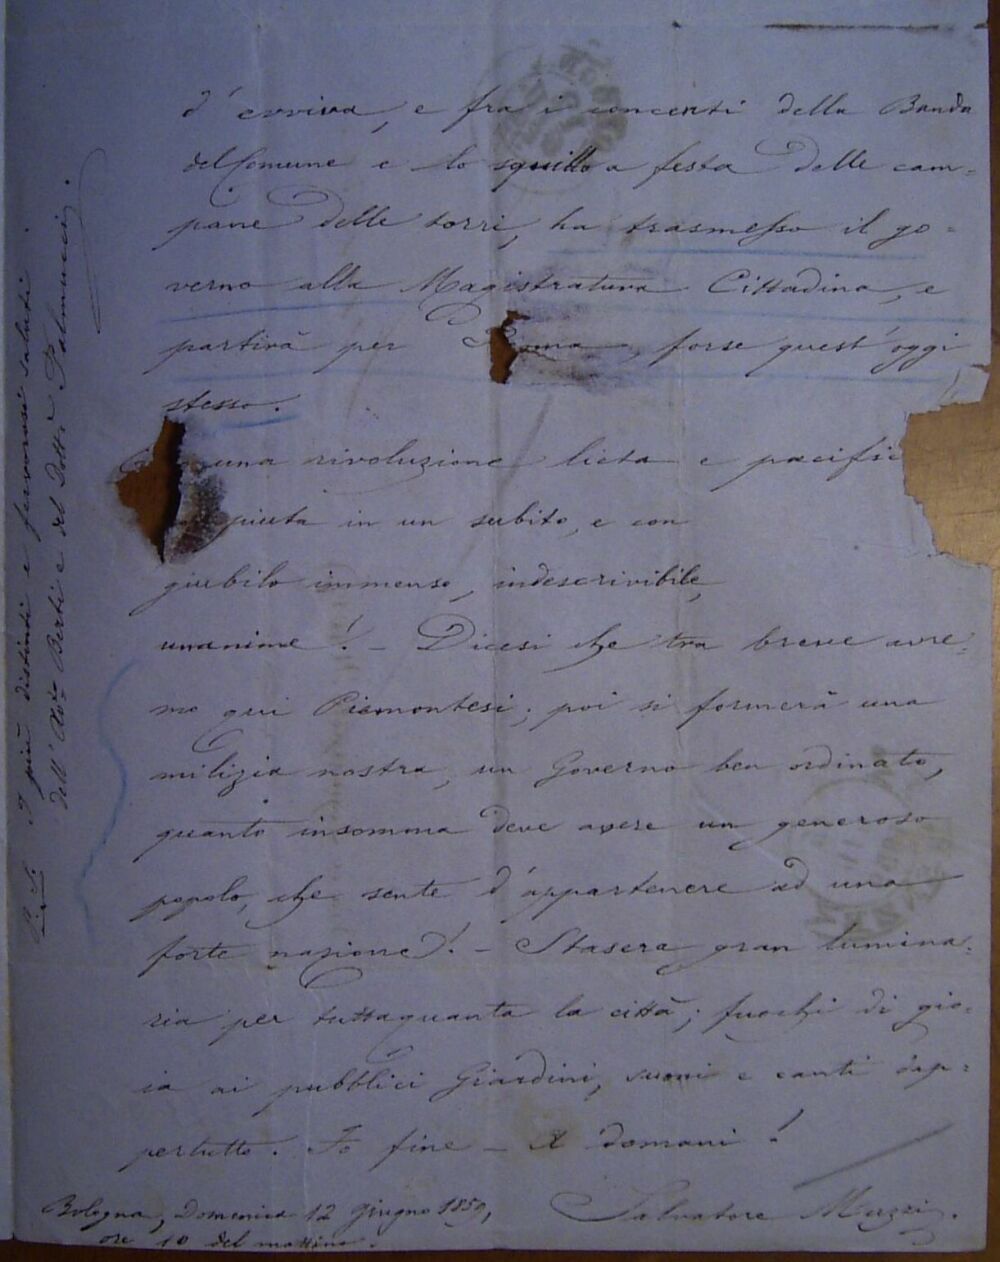 d'evviva, e fra i concerti della Banda
del Comune e lo squillo a festa delle cam-
pane delle torri, ha trasmesso il go-
verno alla Magistratura Cittadina, e
partirà per Roma, forse quest'oggi
stesso.
una rivoluzione lieta e pacifi
piuta in un subito, e con
giubilo immenso, indescrivibile,
unanime! - Dicesi che tra breve avre-
mo qui Piemontesi; poi si formerà una
milizia nostra, un Governo ben ordinato,
quanto insomma deve avere un generoso
popolo, che sente d'appartenere ad una
forte nazione! - Stasera gran lumina-
ria per tuttaquanta la città; fuochi di gio-
ia ai pubblici Giardini, suoni e canti dap-
pertutto. Fo fine - A domani!
Salvatore Muzzi.
Bologna, Domenica 12 Giugno 1859,
ore 10 del mattino.
P.S. I più distinti e fervorosi saluti
dell'Avto Berti e del Dottr Palmucci.